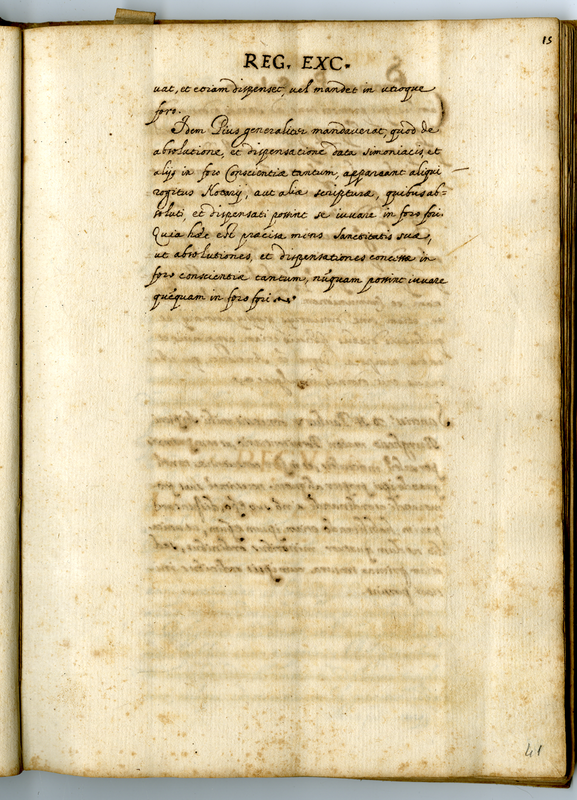 15
REG. EXC.
uat, et etiam dispenset, uel mandet in utroque
foro.
Idem Pius generaliter mandauerat, quod de
absolutione, et dispensatione data simoniacis, et
alijs in foro Conscientiæ tantum, appareant aliqui
rogitus Notarij, aut aliæ scripturæ, quibus ab=
soluti, et dispensati possint se iuuare in foro fori.
Quia hæc est præcisa mens Sanctitatis suæ,
ut absolutiones, et dispensationes concessæ in
foro conscientiæ tantum, nūquam possint iuuare
quēquam in foro fori
41